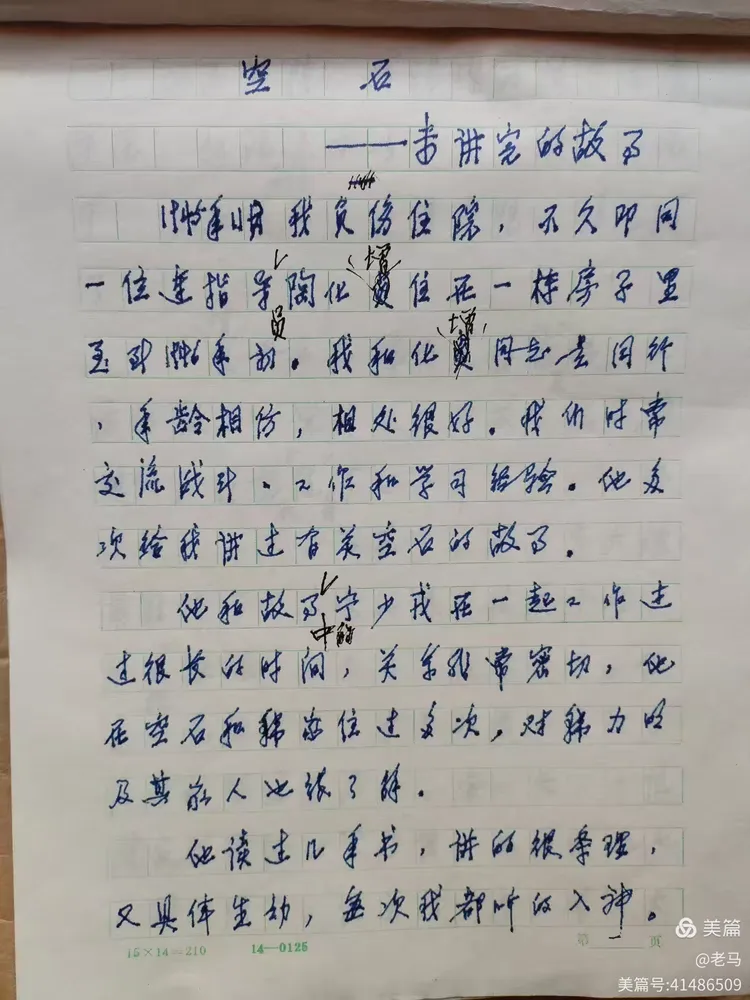 空石
——未讲完的故事
1945年11月我负伤住院，不久即同
一位连指导员陶化增住在一栋房子里
至到1946年初。我和化增同志是同行
、年龄相仿，相处很好。我们时常
交流战斗、工作和学习经验。他多
次给我讲过有关空石的故事。
他和故事中的少戎在一起工作过
过很长的时间，关系非常密切，他
在空石和韩家住过多次，对韩力的
及其家人也很了解。
他读过几年书，讲的很条理，
又具体生动，每次我都听的入神。
15×14=210 14—0125 第一页
美篇
@老马
美篇号:41486509